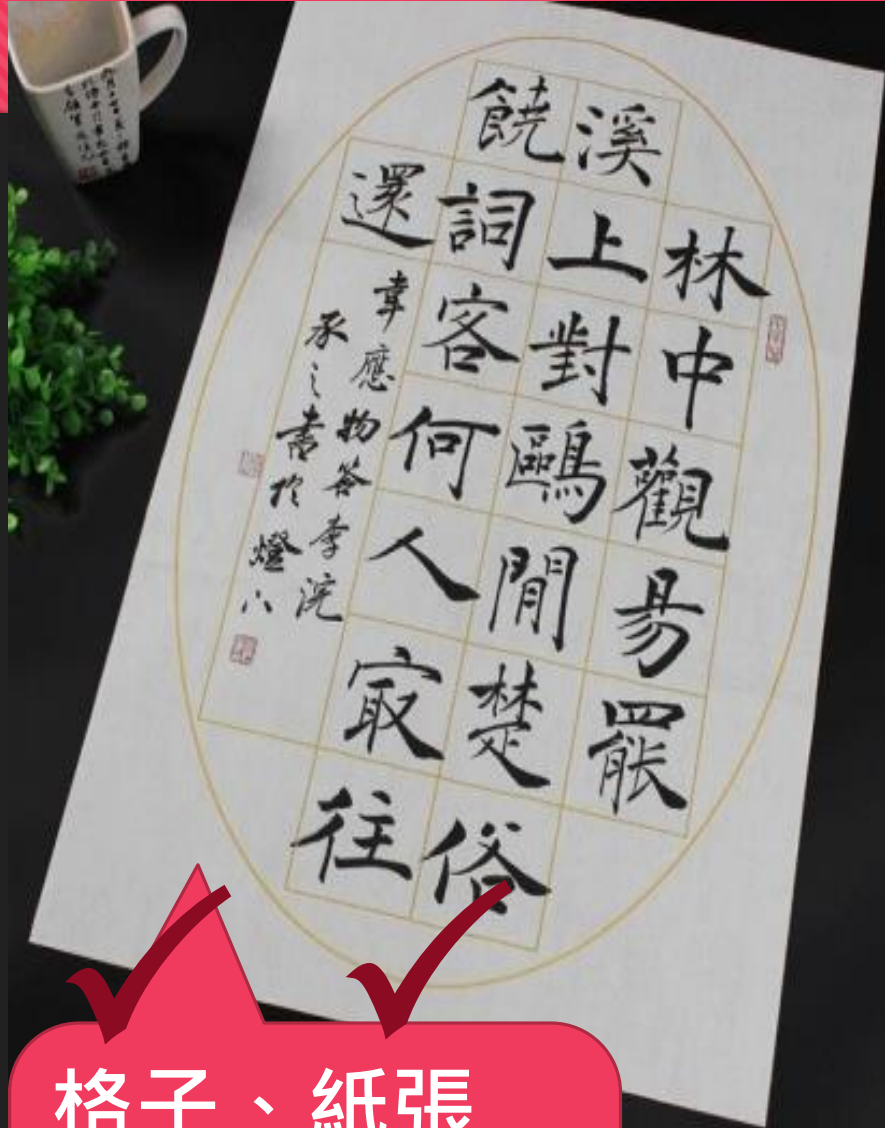 林中觀易罷
溪上對鷗閒楚俗
饒詞客何人㝡往
還
韋應物答李浣
承之書於燈下
格子、紙張